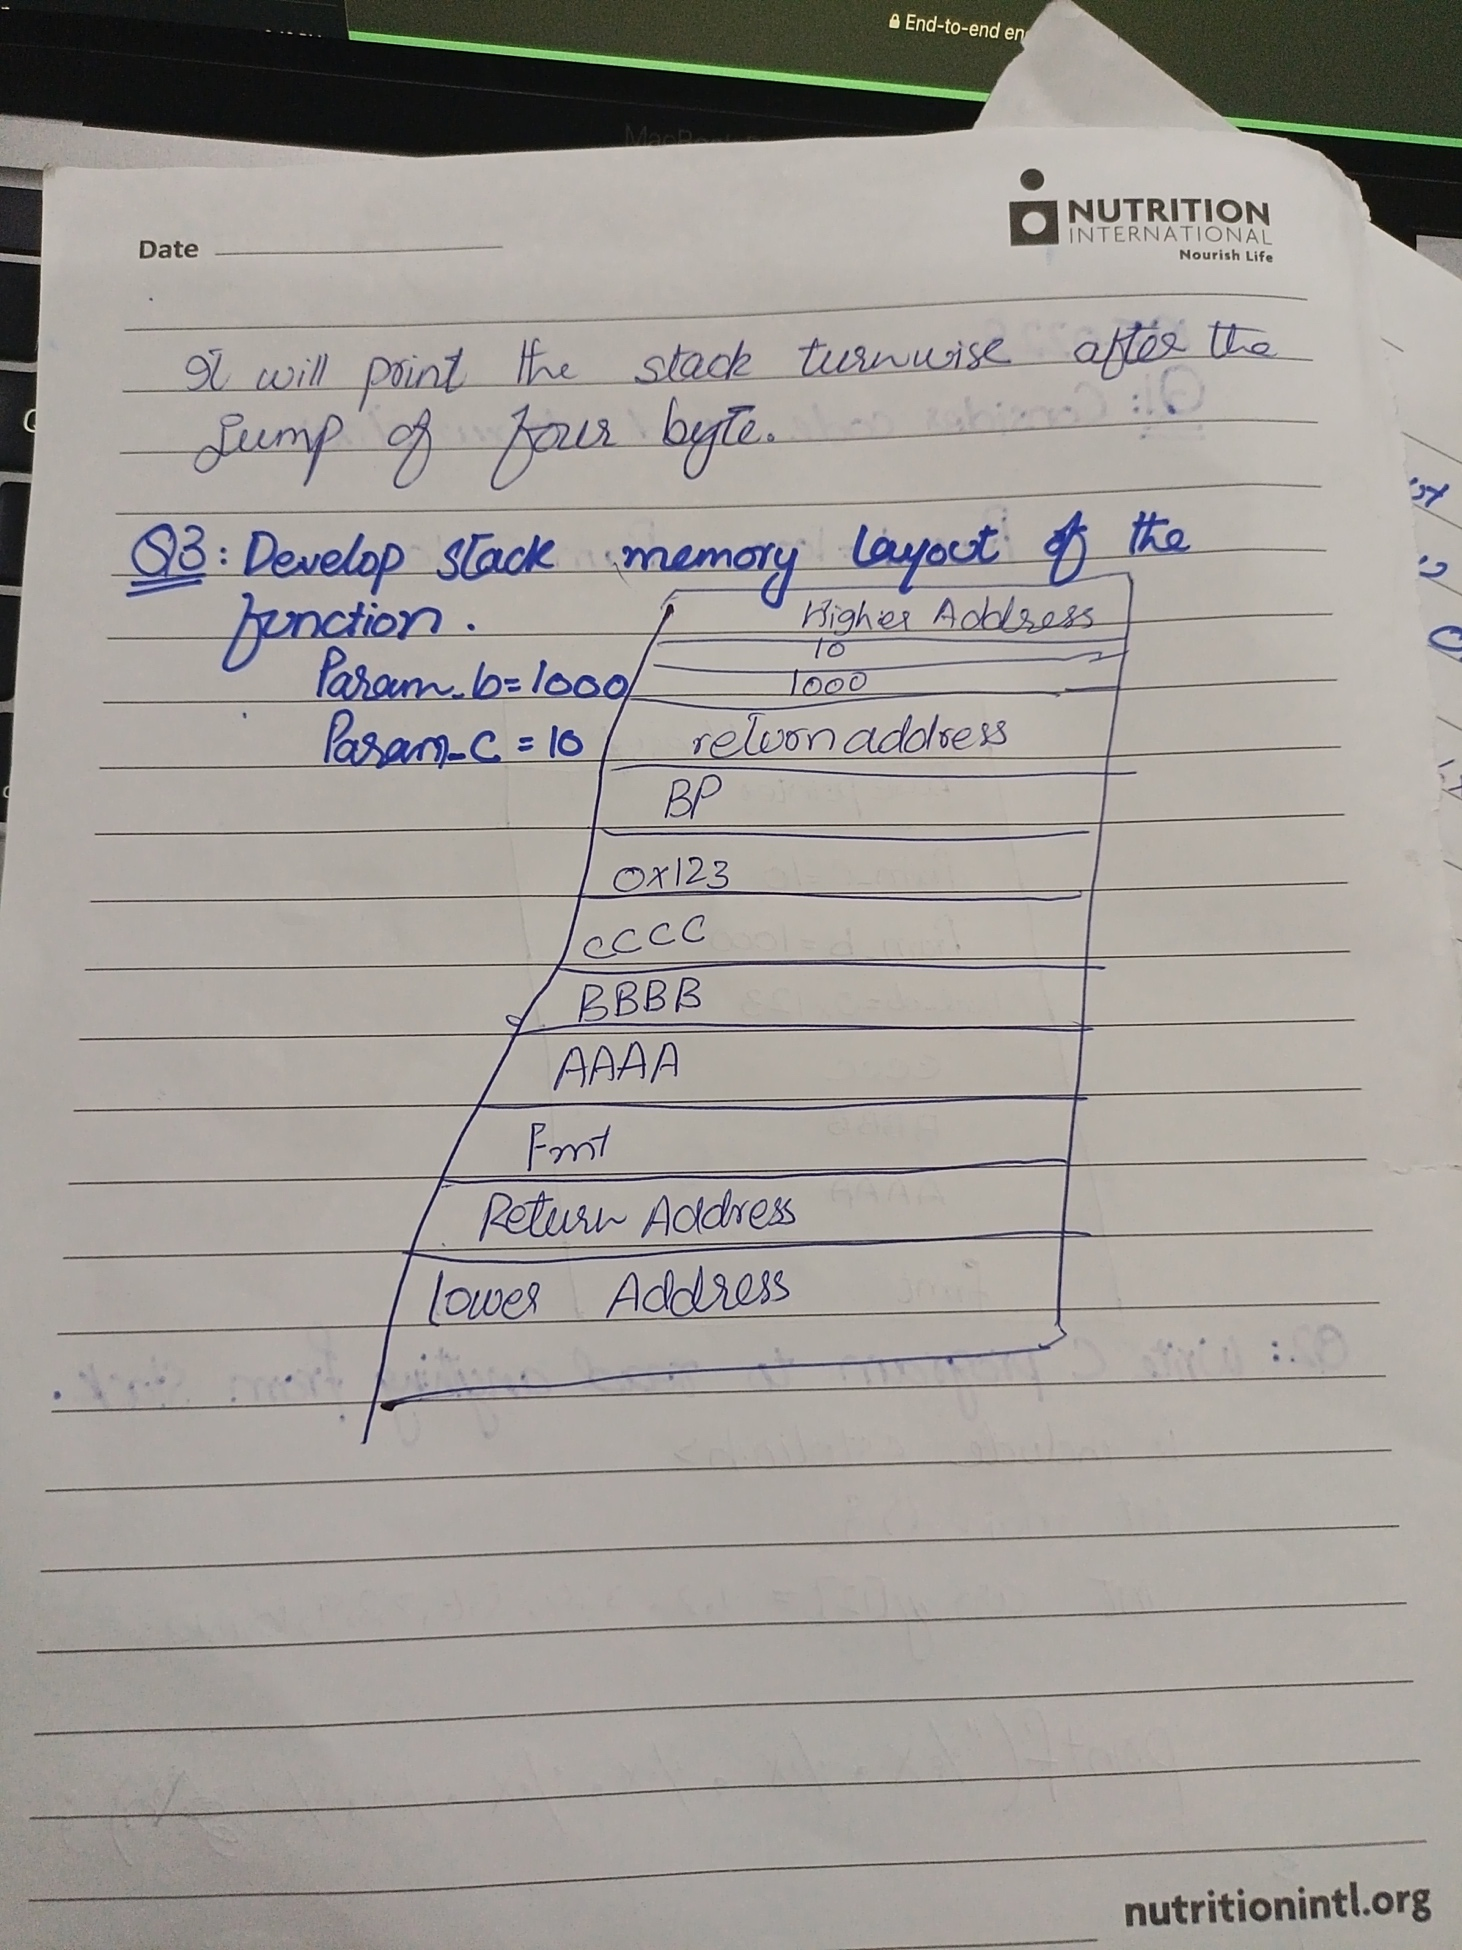 End-to-end en
Date
NUTRITION
INTERNATIONAL
Nourish Life
It will print the stack turnwise after the
Jump of four byte.
Q3: Develop stack memory layout of the
function.
Higher Address
10
Param_b=1000
1000
Param_c = 10
return address
BP
0x123
CCCC
BBBB
AAAA
Fmt
Return Address
lower Address
nutritionintl.org